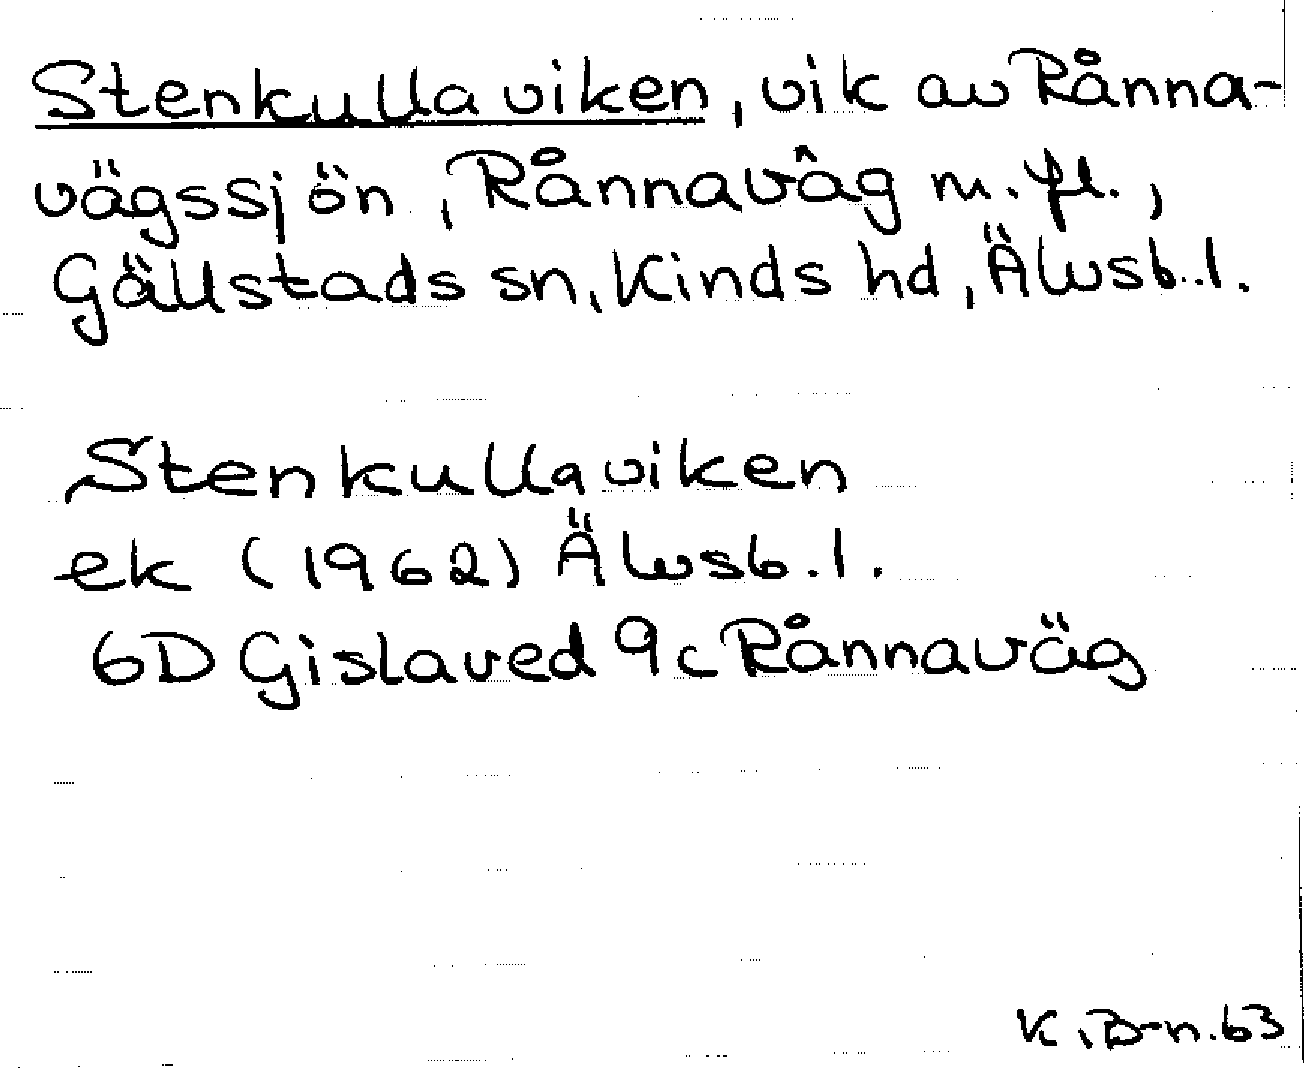 Stenkullaviken, vik av Rånna-
vägssjön, Rånnaväg m.fl.,
Gällstads sn, Kinds hd, Älvsb.l.
Stenkullaviken
ek (1962) Älvsb.l.
6D Gislaved 9c Rånnaväg
K.B-n.63